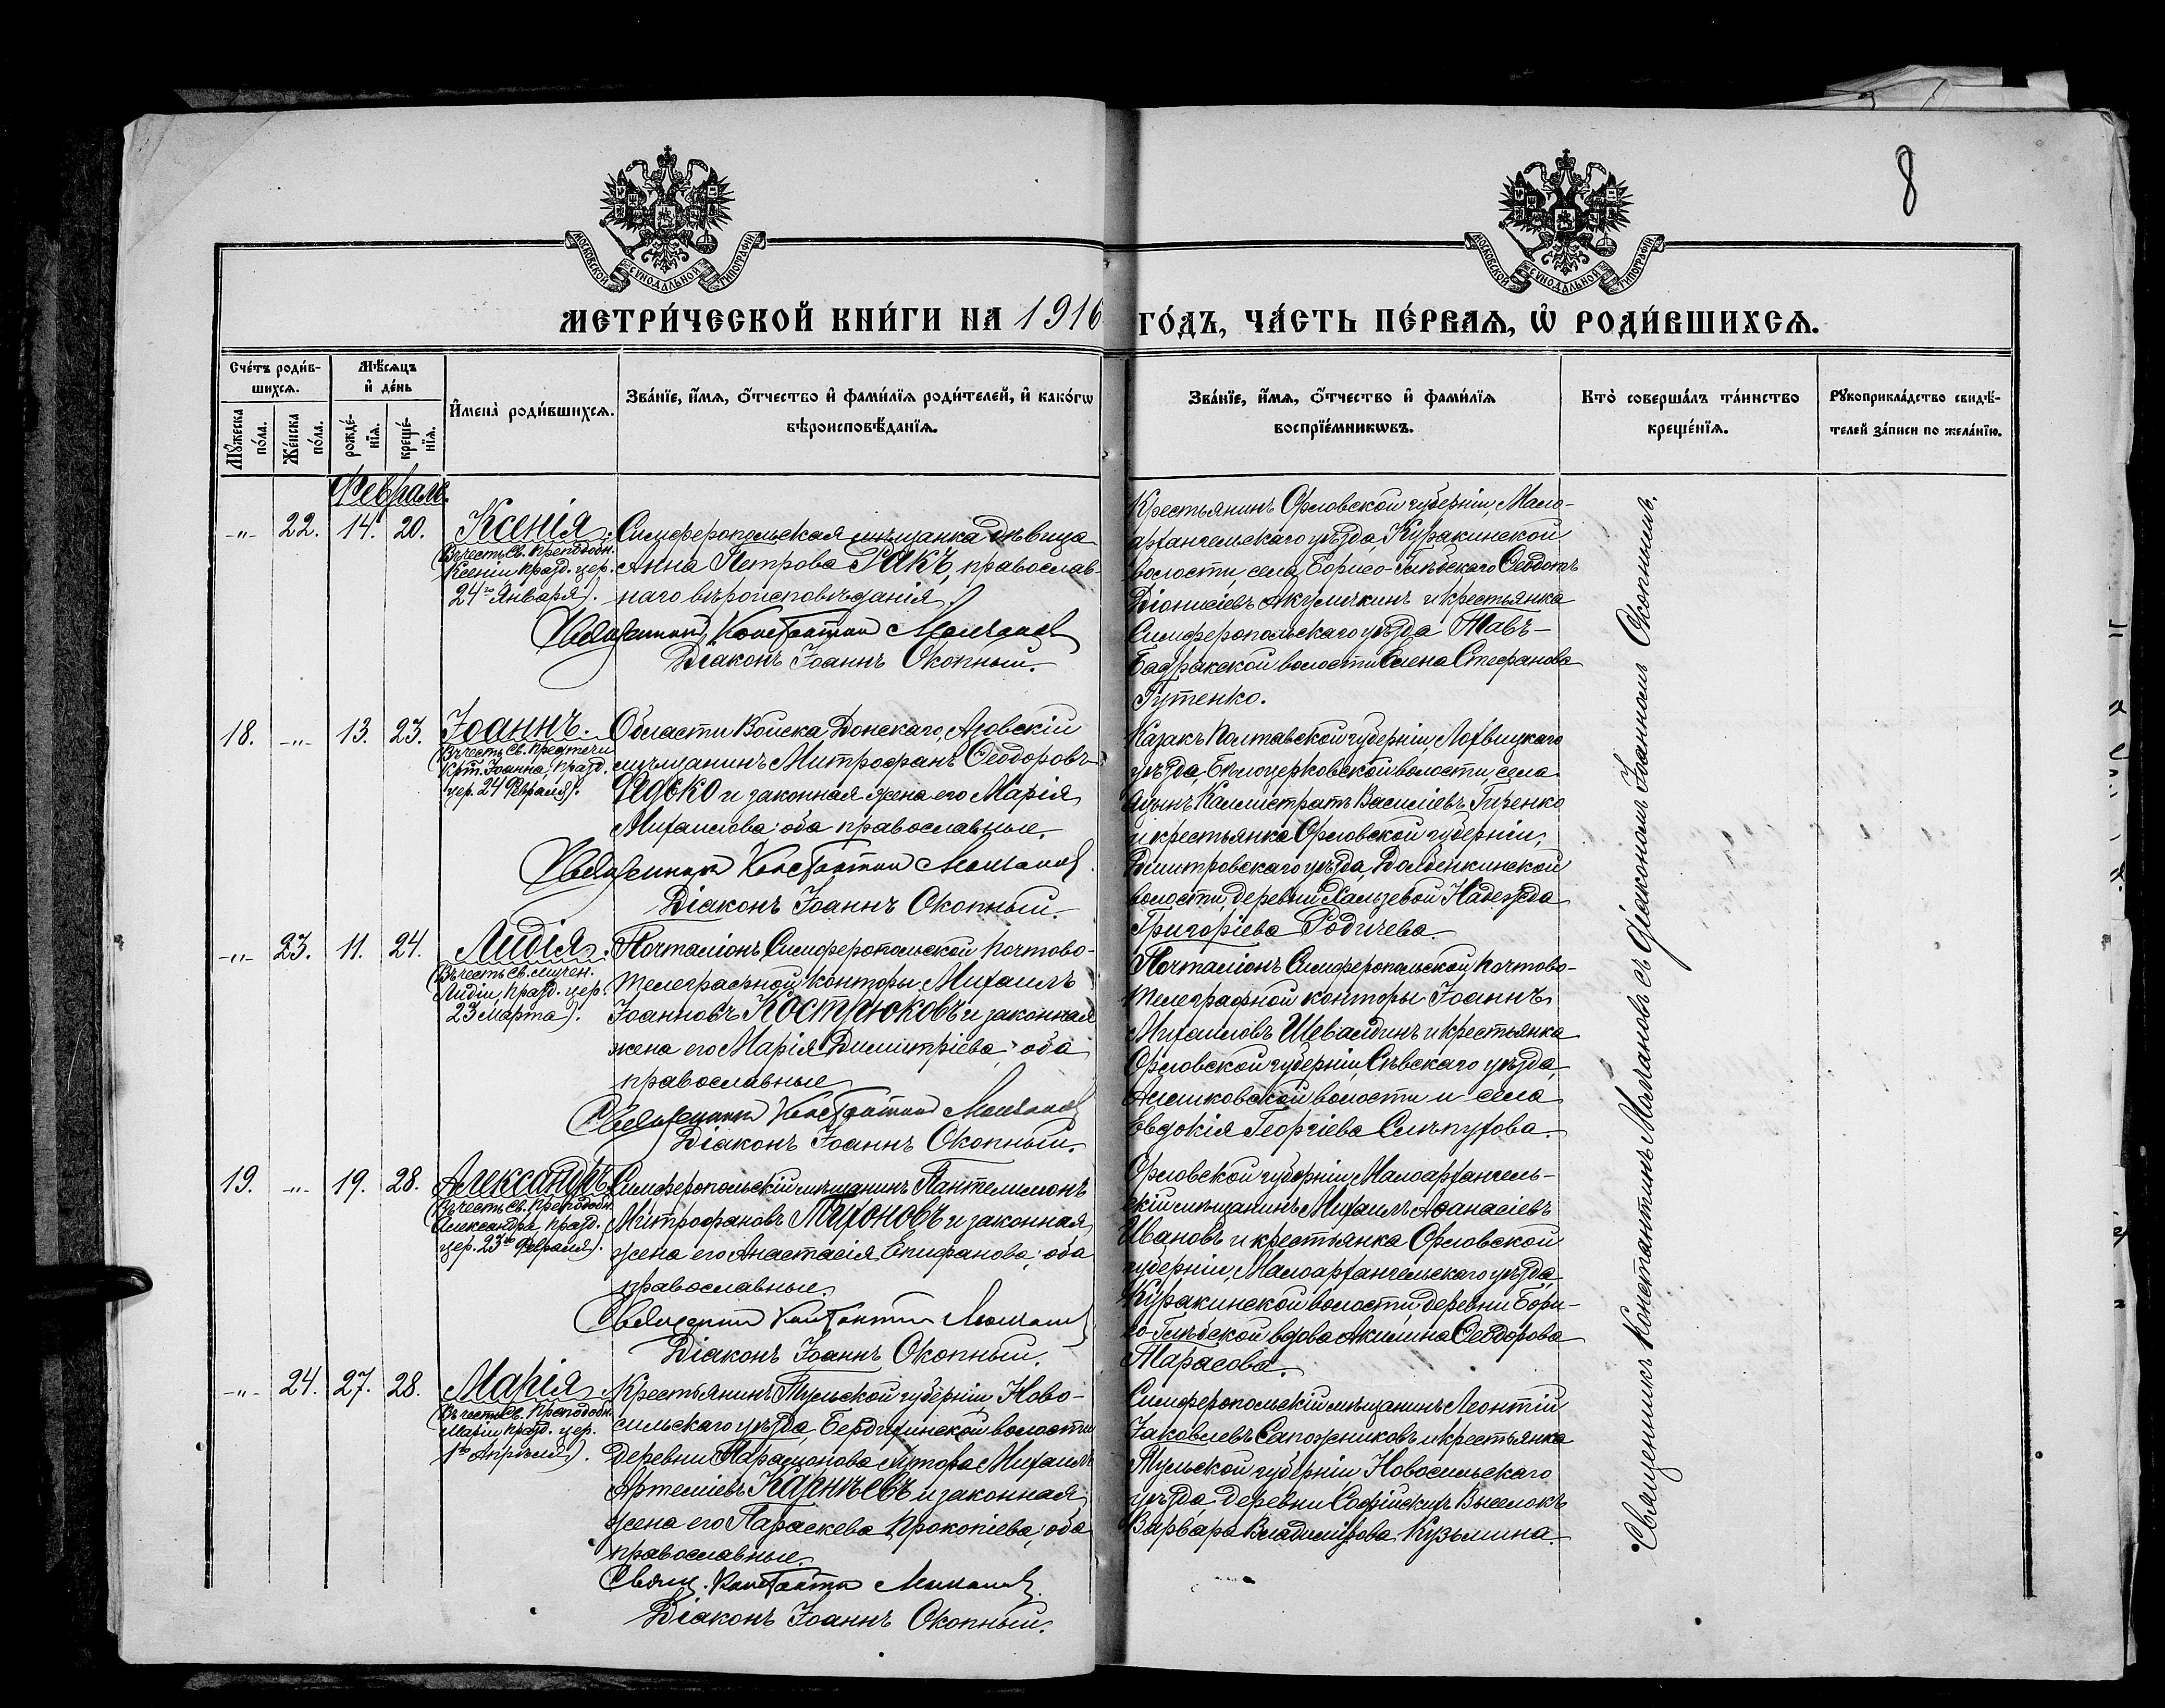 8
МОСКОВСКОЙ СѴНОДАЛЬНОЙ ТИПОГРАФІИ
МОСКОВСКОЙ СѴНОДАЛЬНОЙ ТИПОГРАФІИ
МЕТРИ́ЧЕСКОЙ КНИ́ГИ НА 1916 ГО́ДЪ, ЧА́СТЬ ПЕ́РВАѦ, Ѡ РОДИ́ВШИХСѦ.
Сче́тъ роди́в-
шихсѧ.
Мѣ́сѧцъ
и҆ де́нь
Мꙋ́жеска
по́ла.
Же́нска
по́ла.
рожде́-
нїѧ.
креще́-
нїѧ.
И҆мена̀ роди́вшихсѧ.
Зва́нїе, и҆́мѧ, ѻ҆́тчество и҆ фамѝлїѧ роди́телей, и҆ како́гѡ
вѣроисповѣ́данїѧ.
Зва́нїе, и҆́мѧ, ѻ҆́тчество и҆ фамѝлїѧ
воспрїе́мникѡвъ.
Кто̀ соверша́лъ та́инство
креще́нїѧ.
Рꙋкоприкла́дство свидѣ́-
телей за́писи по жела́нїю.
Февраль.
-"- 22. 14. 20. Ксенія.
(Въ честь св. преподобн.
Ксеніи празд. цер.
24го Января).
Симферопольская мѣщанка дѣвица
Анна Петрова Ракъ, православ-
наго вѣроисповѣданія.
Священникъ Константинъ Молчановъ
Діаконъ Іоаннъ Окопный.
Крестьянинъ Орловской губерніи, Мало-
архангельскаго уѣзда, Куракинской
волости, села Борисо-Глѣбскаго Ѳеодотъ
Діонисіевъ Акуличкинъ и крестьянка
Симферопольскаго уѣзда Тавъ-
Бадракской волости Елена Стефанова
Гутенко.
18. -"- 13. 23. Іоаннъ.
(Въ честь св. Предтечи
Крт. Іоанна, празд.
цер. 24 Февраля).
Области Войска Донскаго, Азовскій
мѣщанинъ Митрофанъ Ѳеодоровъ
Федько и законная жена его Марія
Михаилова: оба православные.
Священникъ Константинъ Молчановъ
Діаконъ Іоаннъ Окопный.
Казакъ Полтавской губерніи, Лохвицкаго
уѣзда, Бѣлоцерковской волости, села
Каллистратъ Василіевъ Гиренко
и крестьянка Орловской губерніи,
Дмитровскаго уѣзда, Долбенкинской
волости, деревни Хальзевой Надежда
Григоріева Родичева.
-"- 23. 11. 24. Лидія.
(Въ честь св. мучен.
Лидіи, празд. цер.
23 Марта).
Почталіонъ Симферопольской почтово-
телеграфной конторы Михаилъ
Іоанновъ Кострюковъ и законная
жена его Марія Димитріева; оба
православные
Священникъ Константинъ Молчановъ
Діаконъ Іоаннъ Окопный.
Почталіонъ Симферопольской почтово-
телеграфной конторы Іоаннъ
Михаиловъ Шевалдинъ и крестьянка
Орловской губерніи, Сѣвскаго уѣзда,
Алешковской волости и села
Евдокія Георгіева Слѣпухова.
19. -"- 19. 28. Александръ.
(Въ честь св. преподобн.
Александра, празд.
цер. 23го Февраля).
Симферопольскій мѣщанинъ Пантелимонъ
Митрофановъ Тихоновъ и законная
жена его Анастасія Епифанова; оба
православные.
Священникъ Константинъ Молчановъ
Діаконъ Іоаннъ Окопный.
Орловской губерніи, Малоархангель-
скій мѣщанинъ Михаилъ Аѳанасіевъ
Ивановъ и крестьянка Орловской
губерніи, Малоархангельскаго уѣзда,
Куракинской волости деревни Бори-
со-Глѣбской вдова Акилина Ѳеодорова
Тарасова.
-"- 24. 27. 28. Марія.
(Въ честь св. Преподобн.
Маріи празд. цер.
1го Апрѣля).
Крестьянинъ Тульской губерніи, Ново-
сильскаго уѣзда, волости
деревни Парамонова Хутора Михаилъ
Артеміевъ Карнѣевъ и законная
жена его Параскева Прокопіева; оба
православные.
Свящ. Константинъ Молчановъ.
Діаконъ Іоаннъ Окопный.
Симферопольскій мѣщанинъ Леонтій
Іаковлевъ Сапожниковъ и крестьянка
Тульской губерніи, Новосильскаго
уѣзда деревни Софійскихъ Выселокъ
Варвара Владимірова Кузьмина.
Священникъ Константинъ Молчановъ съ діакономъ Іоанномъ Окопнымъ.